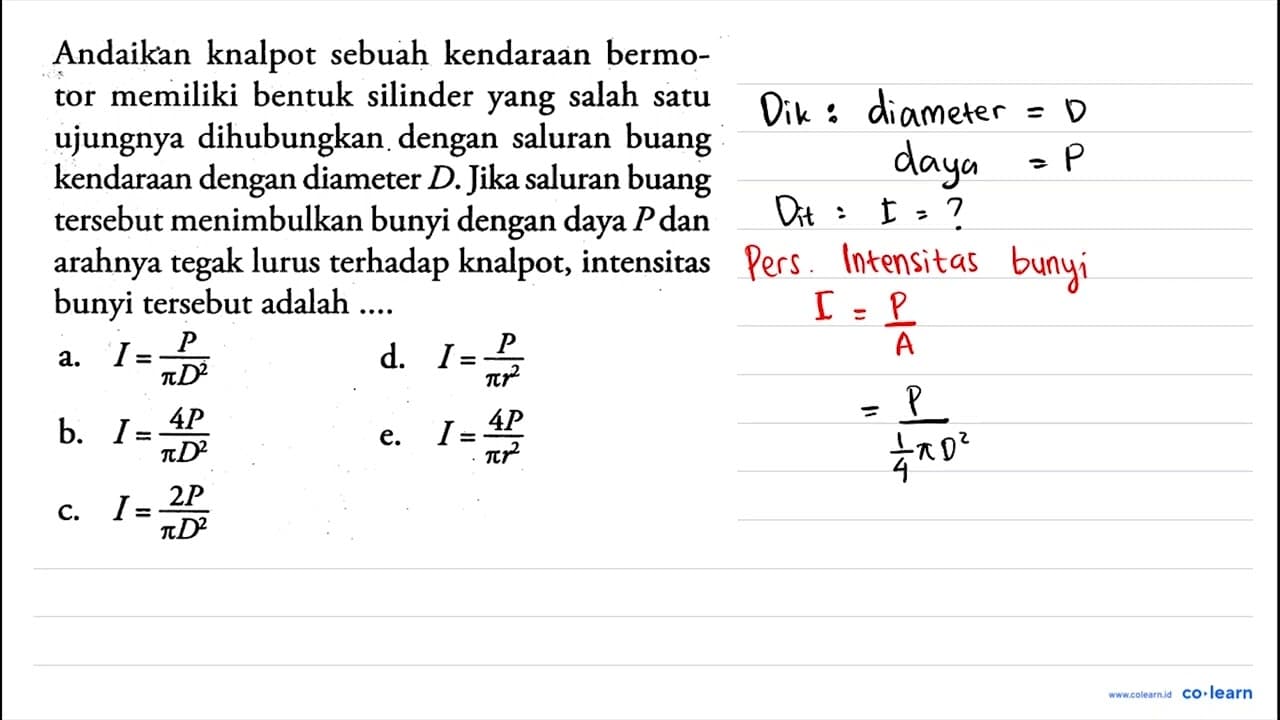 Andaikan knalpot sebuah kendaraan bermo-
tor memiliki bentuk silinder yang salah satu
ujungnya dihubungkan dengan saluran buang
kendaraan dengan diameter D. Jika saluran buang
tersebut menimbulkan bunyi dengan daya P dan
arahnya tegak lurus terhadap knalpot, intensitas
bunyi tersebut adalah ....
a. I = P/πD²
d. I = P/πr²
b. I = 4P/πD²
e. I = 4P/πr²
c. I = 2P/πD²
Dik : diameter = D
daya = P
Dit : I = ?
Pers. Intensitas bunyi
I = P/A
= P/(1/4 π D²)
www.colearn.id co·learn